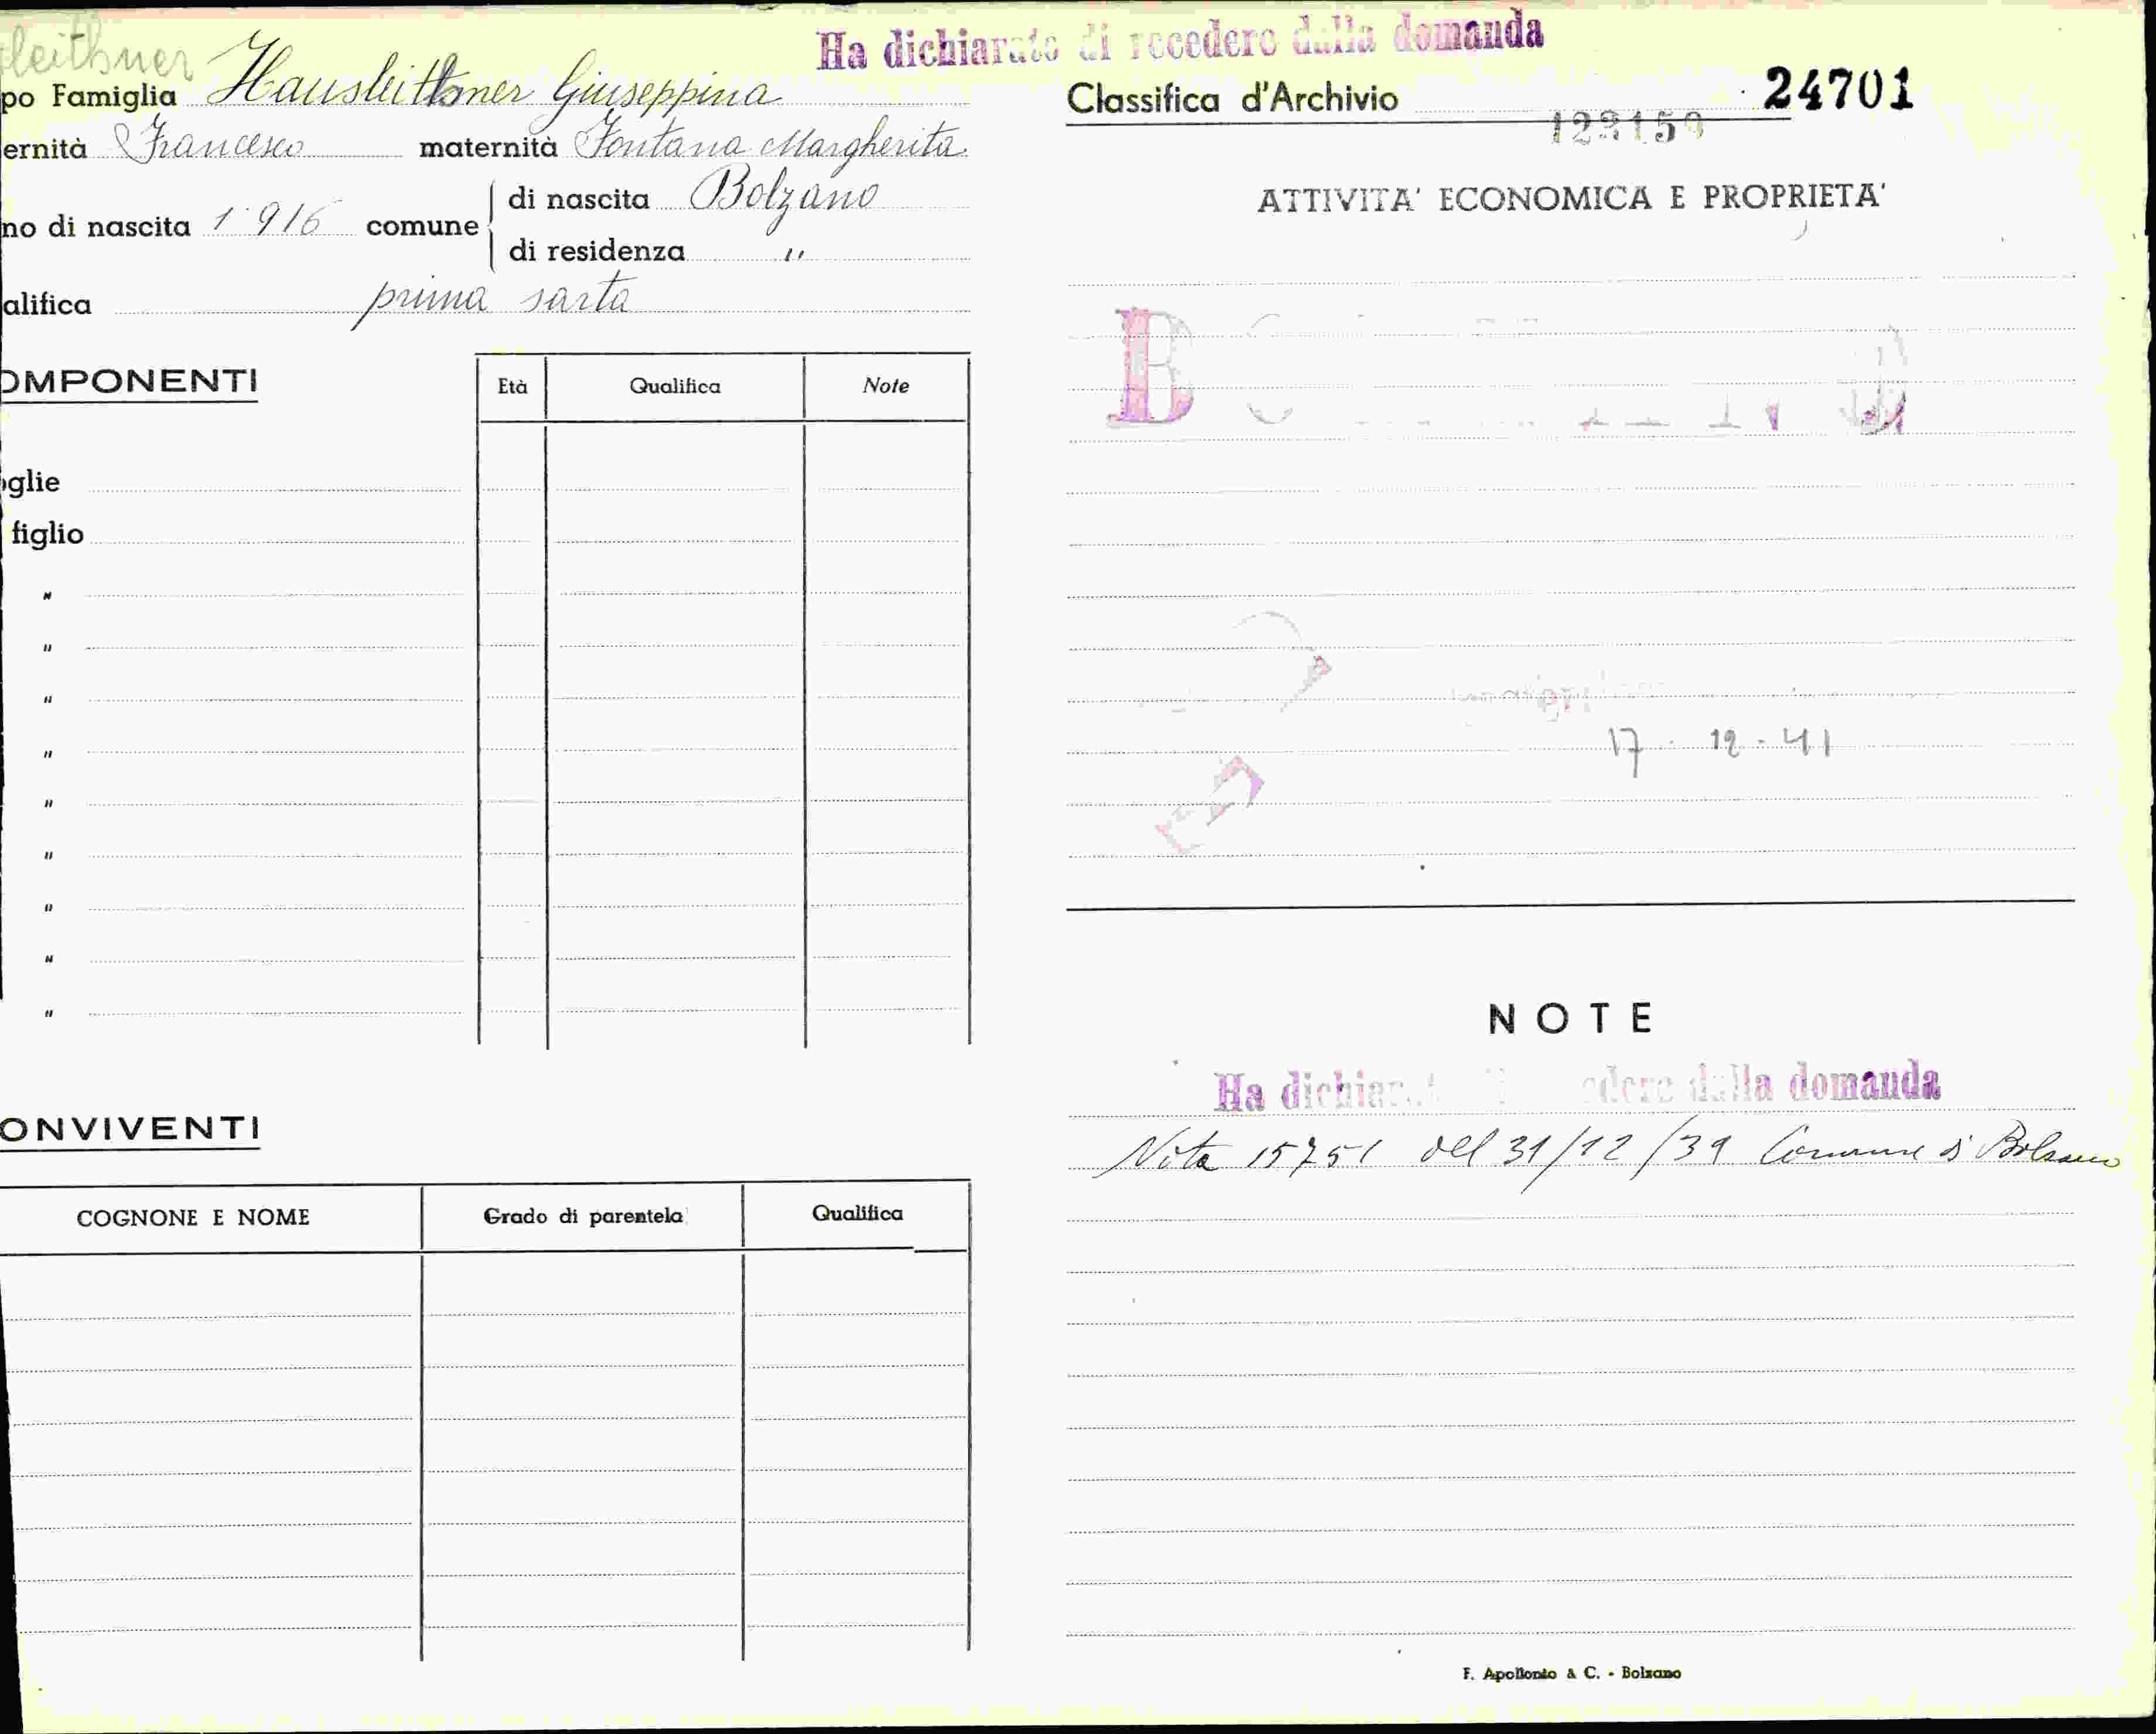 leithner
Ha dichiarato di recedere dalla domanda
po Famiglia Hausleithner Giuseppina
ernità Francesco maternità Fontana Margherita
no di nascita 1916 comune
di nascita Bolzano
di residenza "
alifica prima sarta
OMPONENTI
Età Qualifica Note
glie
figlio
"
"
"
"
"
"
"
"
"
ONVIVENTI
COGNONE E NOME Grado di parentela Qualifica
Classifica d'Archivio 24701
ATTIVITA' ECONOMICA E PROPRIETA'
B
17 - 12 - 41
NOTE
Ha dichiarat edere dalla domanda
Nota 15751 del 31/12/39 Comune di Bolzano
F. Apollonio & C. - Bolzano